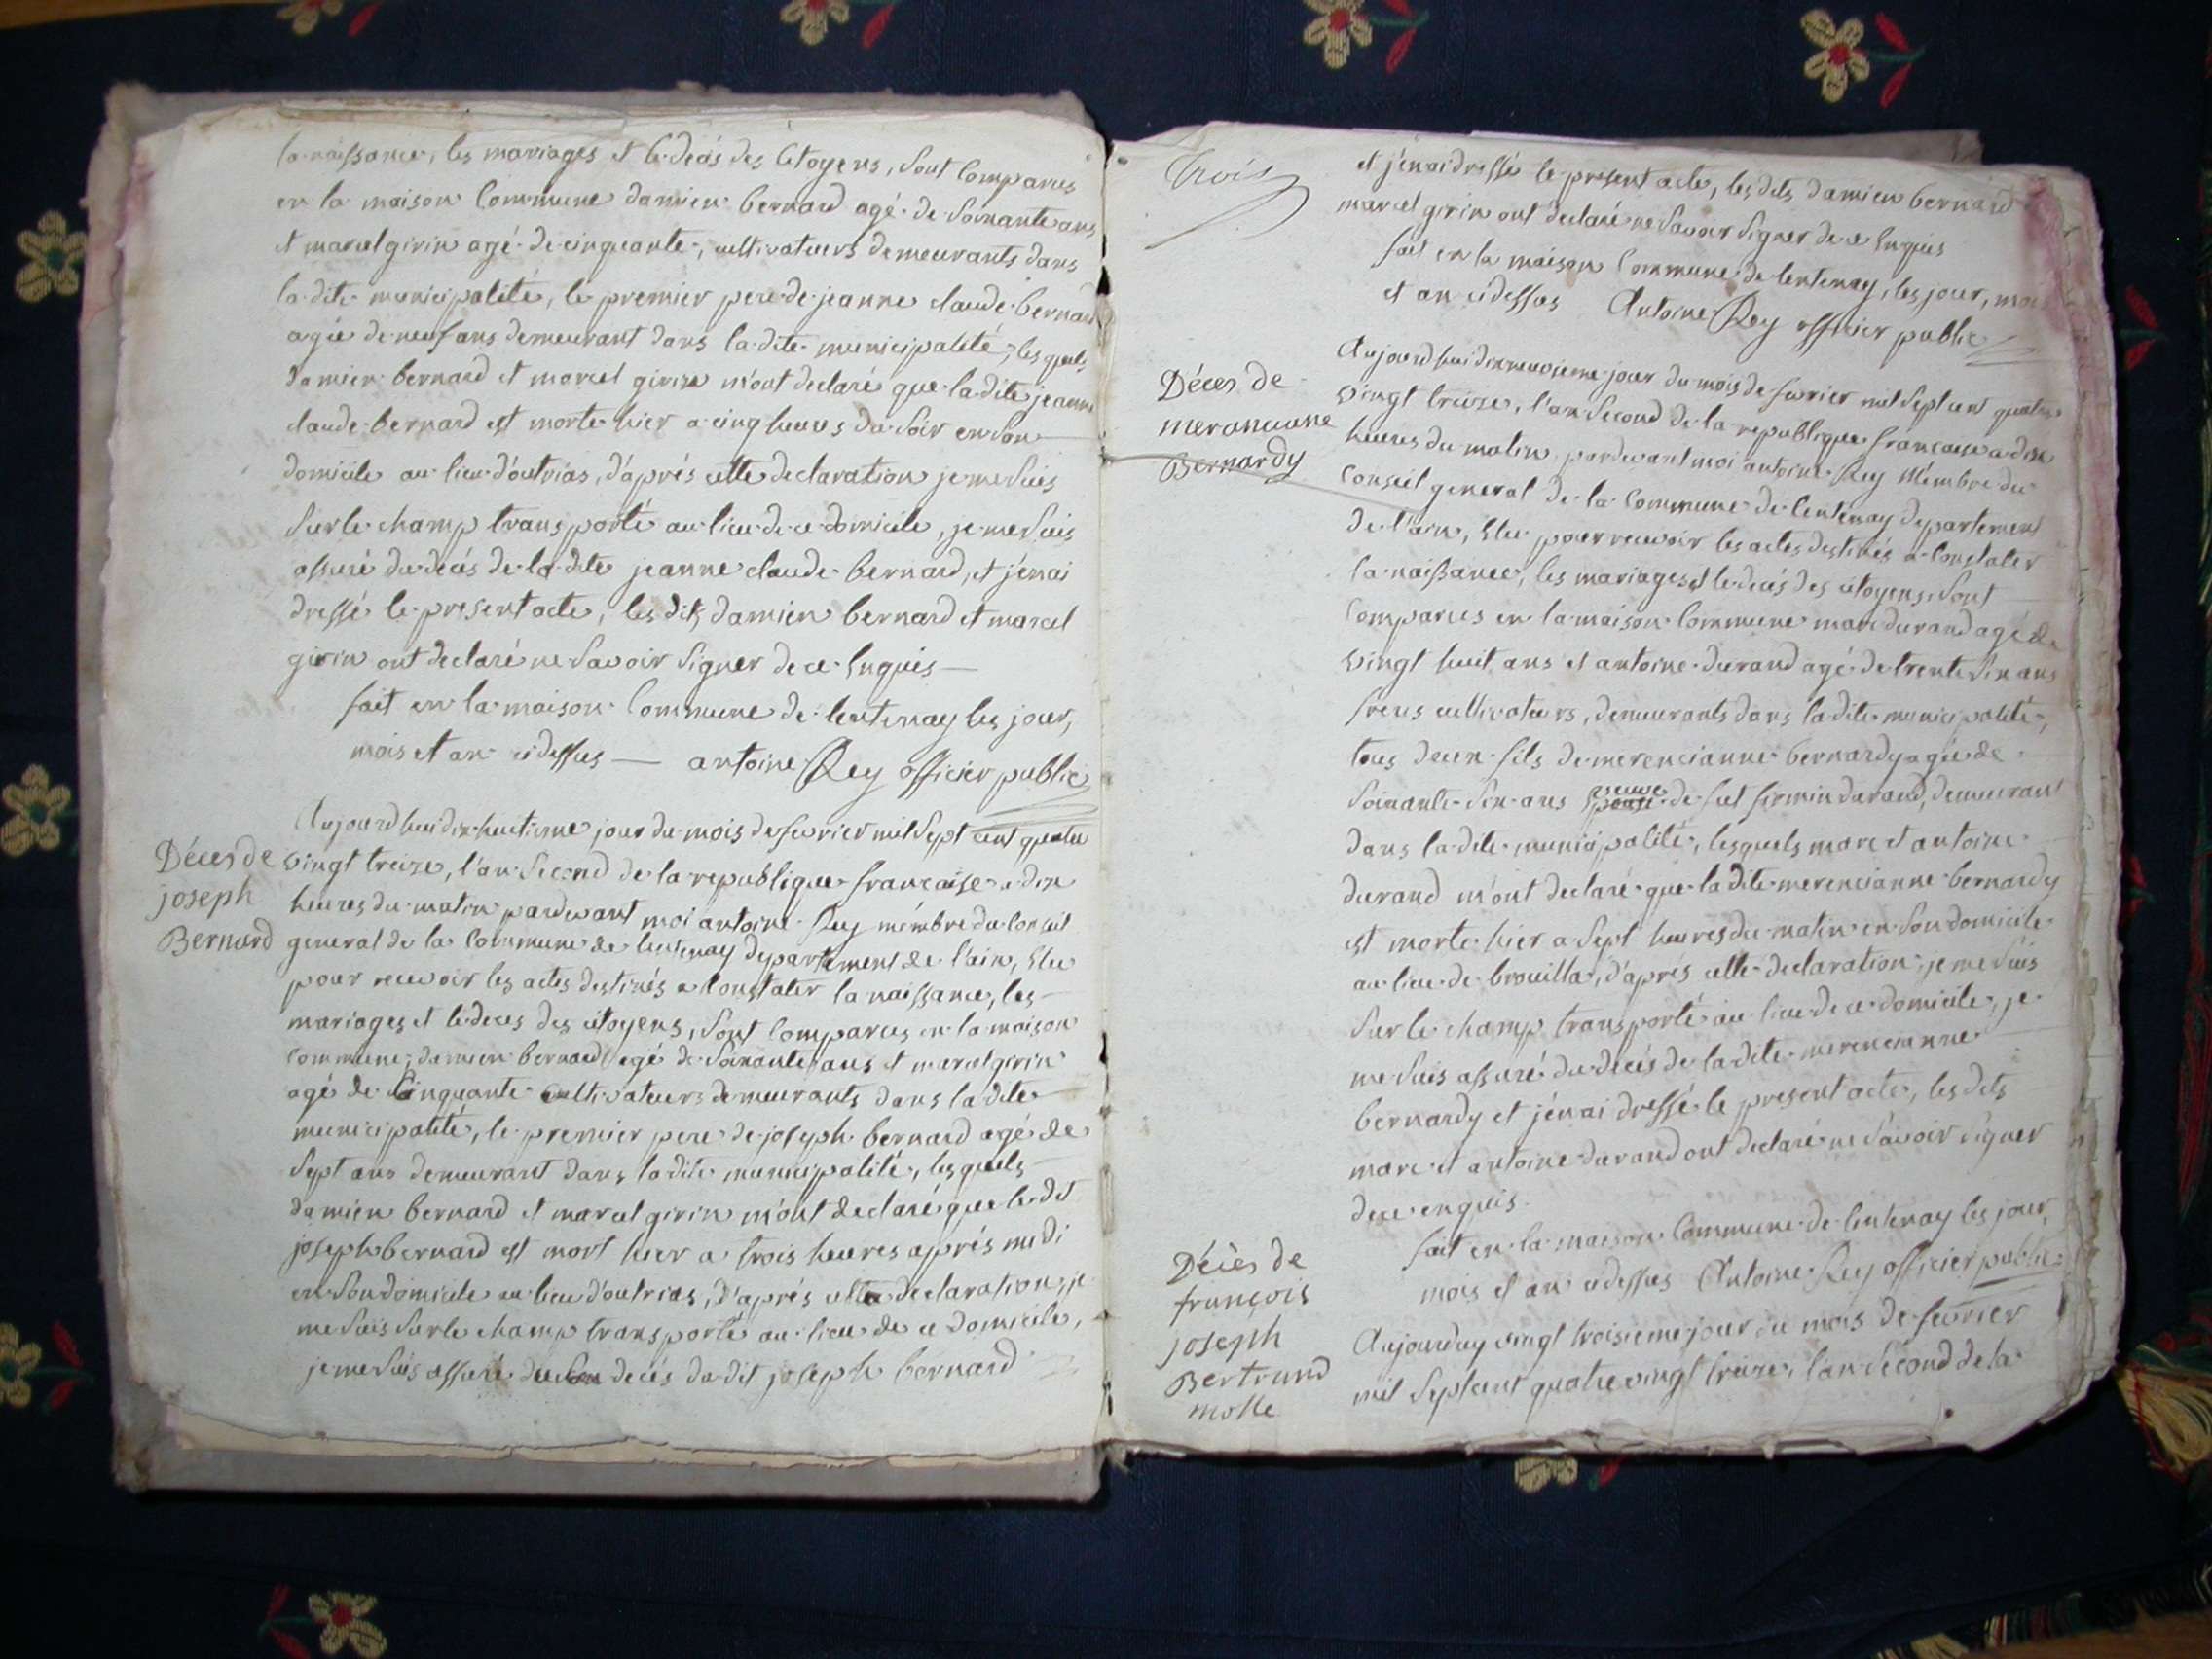 la naissance, les mariages et le décès des citoyens, sont comparus
en la maison commune damien bernard agé de soixante ans
et marcel girin agé de cinquante, cultivateurs demeurants dans
la dite municipalité, le premier pere de jeanne claude bernard
agée de neuf ans demeurant dans la dite municipalité, les quels
damien bernard et marcel girin m'ont declaré que la dite jeanne
claude bernard est morte hier a cinq heures du soir en son
domicile au lieu d'outrias, d'aprés cette declaration je me suis
sur le champ transporté au lieu de ce domicile, je me suis
assuré du decés de la dite jeanne claude bernard, et j'en ai
dressé le present acte, les dits damien bernard et marcel
girin ont declaré ne savoir signer de ce enquis
fait en la maison commune de lentenay les jour,
mois et an ci dessus antoine Rey officier public
Décès de
joseph
Bernard
Aujourd'hui dix huitieme jour du mois de fevrier mil sept cent quatre
vingt treize, l'an second de la republique française a dix
heures du matin pardevant moi antoine Rey mémbre du conseil
general de la commune de lentenay departement de l'ain, élu
pour recevoir les actes destinés a constater la naissance, les
mariages et le deces des citoyens, sont comparus en la maison
commune, damien bernard agé de soixante ans et marcel girin
agé de cinquante cultivateurs demeurants dans la dite
municipalité, le premier pere de joseph bernard agé de
sept ans demeurant dans la dite municipalité, lesquels
damien bernard et marcel girin m'ont declaré que le dit
joseph bernard est mort hier a trois heures aprés midi
en son domicile au lieu d'outrias, d'aprés cette declaration, je
me suis sur le champ transporté au lieu de ce domicile,
je me suis assuré du decés du dit joseph bernard
trois
et j'en ai dressé le present acte, les dits damien bernard
marcel girin ont declaré ne savoir signer de ce enquis
fait en la maison commune de lentenay, les jour, mois
et an ci dessus Antoine Rey officier public
Déces de
meranciane
Bernardy
Aujourd'hui dix neuvieme jour du mois de fevrier mil sept cent quatre
vingt treize, l'an second de la republique francaise a dix
heures du matin pardevant moi antoine Rey mémbre du
conseil general de la commune de lentenay departement
de l'ain, élu pour recevoir les actes destinés a constater
la naissance, les mariages et le decés des citoyens, sont
comparus en la maison commune marc durand agé de
vingt huit ans et antoine durand agé de trente six ans
freres cultivateurs, demeurants dans la dite municipalité,
tous deux fils de merencianne bernardy agée de
soixante six ans veuve de fut firmin durand, demeurant
dans la dite municipalité, lesquels marc et antoine
durand m'ont declaré que la dite merencianne bernardy
est morte hier a sept heures du matin en son domicile
au lieu de brouilla, d'aprés cette declaration, je me suis
sur le champ transporté au lieu de ce domicile, je
me suis assuré du decés de la dite merencianne
bernardy et j'en ai dressé le present acte, les dits
marc et antoine durand ont declaré ne savoir signer
de ce enquis.
fait en la maison commune de lentenay les jour,
mois et an ci dessus Antoine Rey officier public
Décès de
françois
joseph
Bertrand
molle
Aujourduy vingt troisieme jour du mois de fevrier
mil sept cent quatre vingt treize, l'an second de la